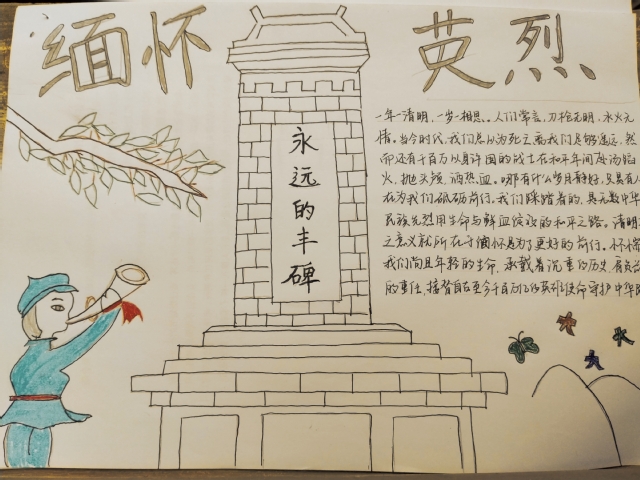 缅怀
英烈
永远的丰碑
一年一清明，一岁一相思。人们常言，刀枪无明，水火无
情。当今时代，我们总以为死亡离我们足够遥远，然
而还有千百万以身许国的战士在和平年间赴汤蹈
火，抛头颅，洒热血。哪有什么岁月静好，只是有人
在为我们砥砺前行。我们踩踏着的，是无数中华
民族先烈用生命与鲜血 的和平之路。清明
之意义就所在于缅怀是为了更好的前行。怀
我们尚且年轻的生命，承载着沉重的历史，肩负
的责任，接替自 至今千百万 英 使命守护中华